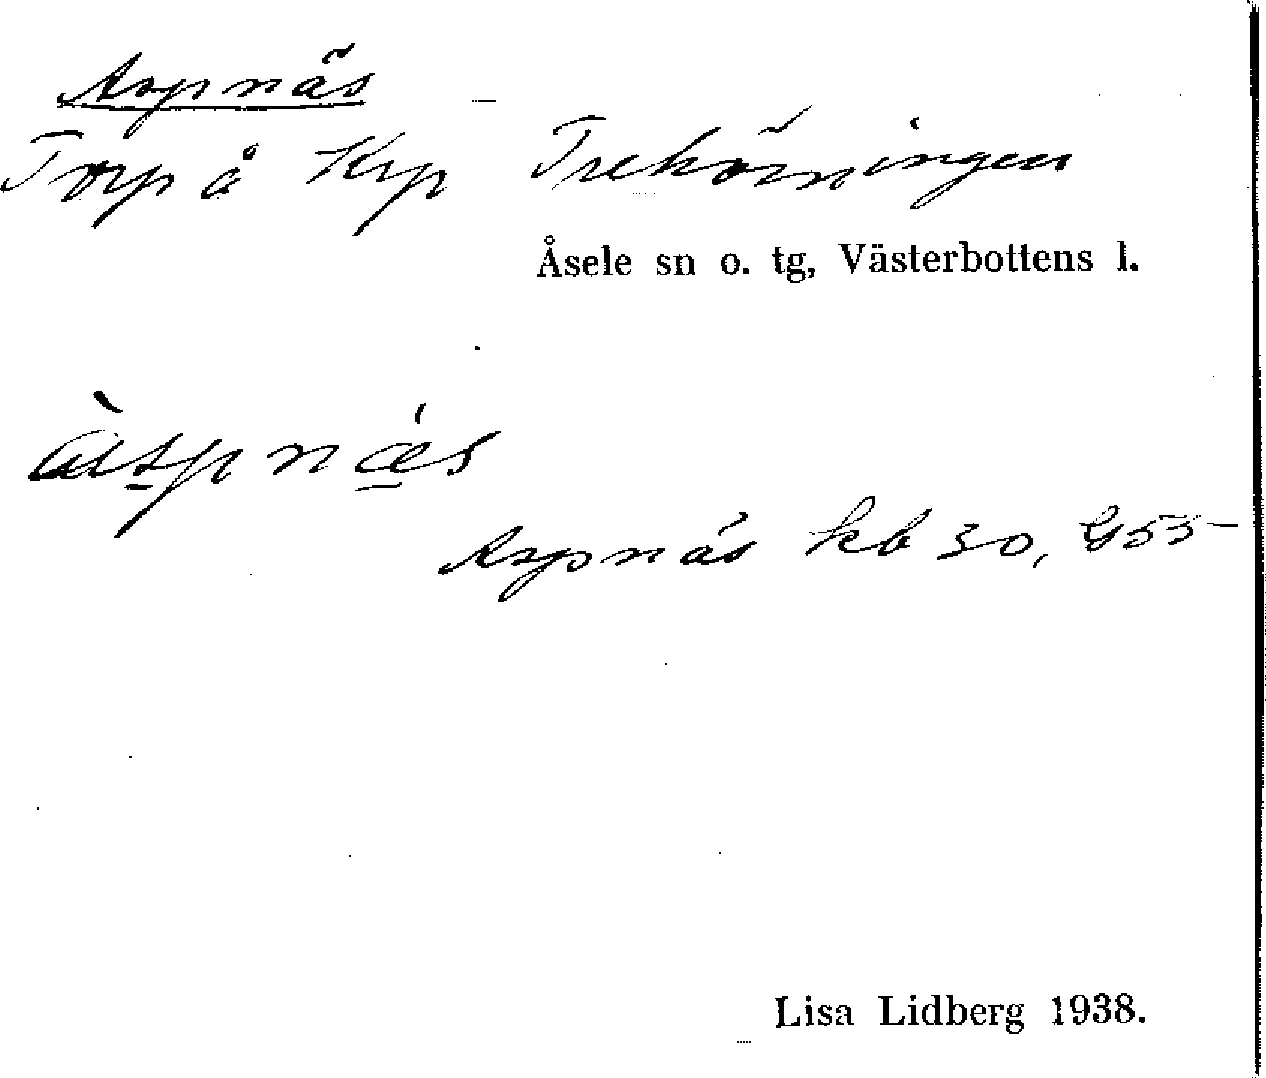 Aspnäs
Torp å Krp Trehörningen
Åsele sn o. tg, Västerbottens l.
àspnǽs
Aspnäs kb 30, G55
Lisa Lidberg 1938.